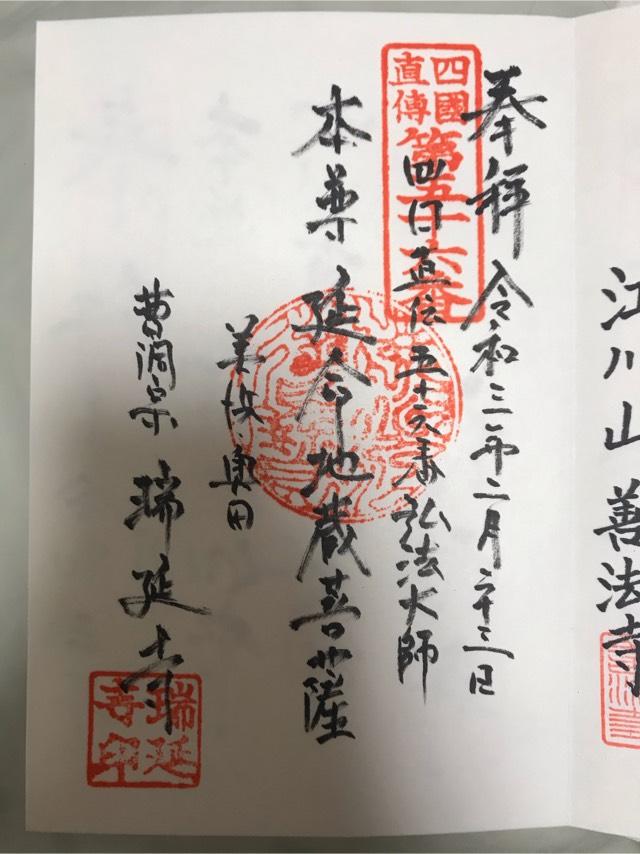 江川山 善法寺
奉拝 令和三年二月二十三日
四國
直傳
第五十六番
四口直伝 五十六番 弘法大師
本尊 延命地蔵菩薩
美浜 奥田
曹洞宗 瑞延寺
瑞延
寺印